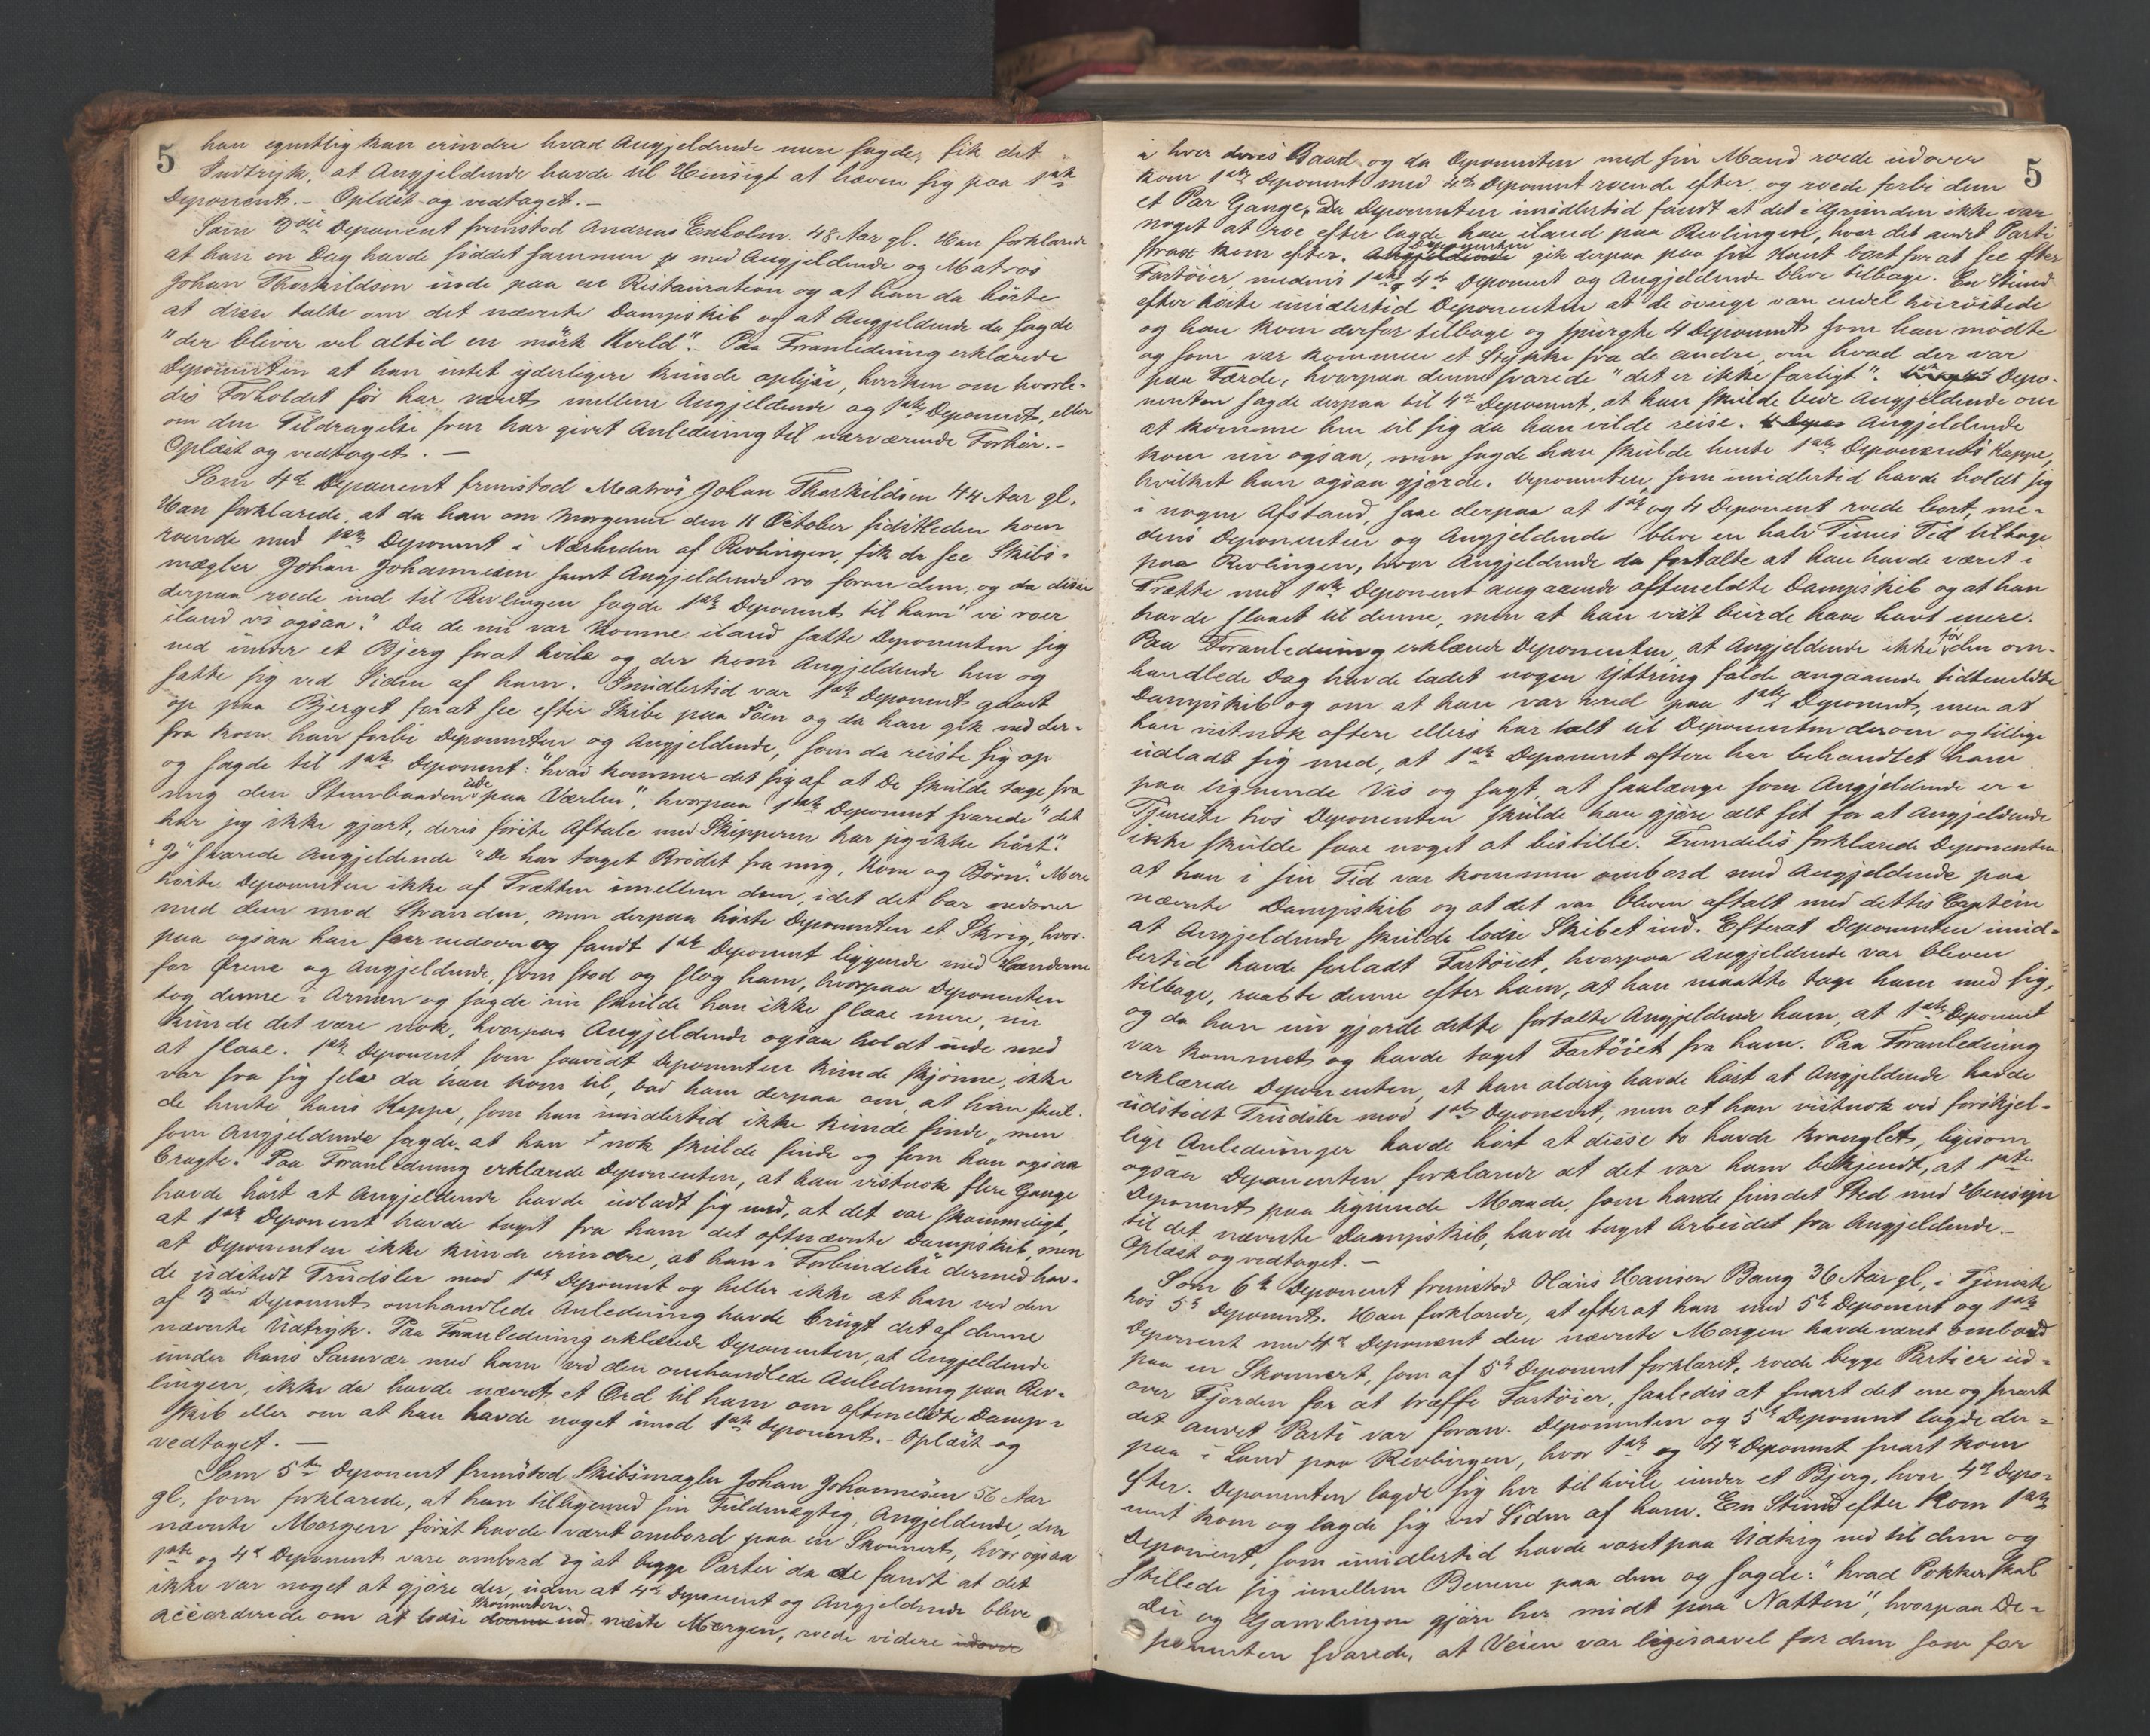 5
han egentlig kan erindre hvad Angjeldende mere sagde, fik det
Indtryk, at Angjeldende havde til Hensigt at hævne sig paa 1ste
Deponent. - Oplæst og vedtaget. -
Som 3die Deponent fremstod Andreas Enholm. 48 Aar gl. Han forklarede
at han en Dag havde siddet sammen med Angjeldende og Matros
Johan Thorkildsen inde paa en Restauration og at han da hörte
at disse talte om det nævnte Dampskib og at Angjeldende da sagde
"der bliver vel altid en mörk Kveld". - Paa Foranledning erklærede
Deponenten at han intet yderligere kunde oplyse, hverken om hvorle-
des Forholdet för har været mellem Angjeldende og 1ste Deponent, eller
om den Tildragelse som har givet Anledning til nærværende Forhör. -
Oplæst og vedtaget. -
Som 4de Deponent fremstod Matros Johan Thorkildsen 44 Aar gl.
Han forklarede, at da han om Morgenen den 11 October sidstleden kom
roende med 1ste Deponent i Nærheden af Revlingen, fik de see Skibs-
mægler Johan Johannesen samt Angjeldende ro foran dem, og da disse
derpaa roede ind til Revlingen sagde 1ste Deponent til ham "vi roer
iland vi ogsaa." Da de nu var komne iland satte Deponenten sig
ned under et Bjerg forat hvile og der kom Angjeldende hen og
satte sig ved Siden af ham. Imidlertid var 1ste Deponent gaaet
op paa Bjerget forat see efter Skibe paa Söen og da han gik ned der-
fra kom han forbi Deponenten og Angjeldende, som da reiste sig op
og sagde til 1ste Deponent: "hvad kommer det sig af at De skulde tage fra
mig den Steenbaaden ude paa Værlen", hvorpaa 1ste Deponent svarede "det
har jeg ikke gjort, deres förste Aftale med Skipperen har jeg ikke hört."
"Jo" svarede Angjeldende "De har taget Brödet fra mig, Kone og Börn." Mere
hörte Deponenten ikke af Trætten imellem dem, idet det bar nedover
med dem mod Stranden, men derpaa hörte Deponenten et Skrig, hvor-
paa ogsaa han foer nedover og fandt 1ste Deponent liggende med Hænderne
for Ørene og Angjeldende, som stod og slog ham, hvorpaa Deponenten
tog denne i Armen og sagde nu skulde han ikke slaae mere, nu
kunde det være nok, hvorpaa Angjeldende ogsaa holdt inde med
at slaae. 1ste Deponent, som saavidt Deponenten kunde skjönne, ikke
var fra sig selv da han kom til, bad ham derpaa om, at han skul-
de hente hans Kappe, som han imidlertid ikke kunde finde, men
som Angjeldende sagde at han nok skulde finde og som han ogsaa
bragte. Paa Foranledning erklærede Deponenten, at han vistnok flere Gange
havde hört at Angjeldende havde udladt sig med, at det var skammeligt,
at 1ste Deponent havde taget fra ham det oftnævnte Dampskib, men
at Deponenten ikke kunde erindre, at han i Forbindelse dermed hav-
de udstedt Trudsler mod 1ste Deponent og heller ikke at han ved den
af 3die Deponent omhandlede Anledning havde brugt det af denne
nævnte Udtryk. Paa Foranledning erklærede Deponenten, at Angjeldende
under hans Samvær med ham ved den omhandlede Anledning paa Rev-
lingen, ikke da havde nævnt et Ord til ham om oftmeldte Damp-
skib eller om at han havde noget imod 1ste Deponent. - Oplæst og
vedtaget. -
Som 5te Deponent fremstod Skibsmægler Johan Johannesen 56 Aar
gl, som forklarede, at han tilligemed sin Fuldmægtig, Angjeldende, den
nævnte Morgen först havde været ombord paa en Skonnert, hvor ogsaa
1ste og 4de Deponent vare ombord og at begge Partier da de fandt at det
ikke var noget at gjöre der, uden at 4de Deponent og Angjeldende blev
accorderede om at lodse Skonnerten ind næste Morgen, roede videre udover
5
i hver deres Baad og da Deponenten med sin Mand roede udover
kom 1ste Deponent med 4de Deponent roende efter og roede forbi dem
et Par Gange, Da Deponenten imidlertid fandt at det i Grunden ikke var
noget at roe efter lagde han iland paa Revlingen, hvor det andet Parti
strax kom efter. Angjeldende Deponenten gik derpaa paa sin Kant bort for at see efter
Fartöier, medens 1ste og 4de Deponent og Angjeldende blev tilbage. En Stund
efter hörte imidlertid Deponenten at de övrige var endel höiröstede
og han kom derfor tilbage og spurgte 4 Deponent som han mödte
og som var kommen et Stykke fra de andre, om hvad der var
paa Færde, hvorpaa denne svarede "det er ikke farligt". Depo-
nenten sagde derpaa til 4de Deponent, at han skulde bede Angjeldende om
at komme hen til sig da han vilde reise. 4 Depon Angjeldende
kom nu ogsaa, men sagde han skulde hente 1ste Deponents Kappe,
hvilket han ogsaa gjorde. Deponenten som imidlertid havde holdt sig
i nogen Afstand, saae derpaa at 1ste og 4 Deponent roede bort, me-
dens Deponenten og Angjeldende blev en halv Times Tid tilbage
paa Revlingen, hvor Angjeldende da fortalte at han havde været i
Trætte med 1ste Deponent angaaende oftmeldte Dampskib og at han
havde slaaet til denne, men at han vist burde have havt mere.
Paa Foranledning erklærede Deponenten, at Angjeldende ikke för den om-
handlede Dag havde ladet nogen Yttring falde angaaende tidtmeldte
Dampskib og om at han var vred paa 1ste Deponent, men at
han vistnok oftere ellers har talt til Deponenten derom og tillige
udladt sig med, at 1ste Deponent oftere har behandlet ham
paa lignende Vis og sagt, at saalænge som Angjeldende er i
Tjeneste hos Deponenten skulde han gjöre alt sit for at Angjeldende
ikke skulde faae noget at bestille. Fremdeles forklarede Deponenten
at han i sin Tid var kommen ombord med Angjeldende paa
nævnte Dampskib og at det var bleven aftalt med dettes Captein
at Angjeldende skulde lodse Skibet ind. Efterat Deponenten imid-
lertid havde forladt Fartöiet, hvorpaa Angjeldende var bleven
tilbage, raabte denne efter ham, at han maatte tage ham med sig,
og da han nu gjorde dette fortalte Angjeldende ham, at 1ste Deponent
var kommet og havde taget Fartöiet fra ham. Paa Foranledning
erklærede Deponenten, at han aldrig havde hört at Angjeldende havde
udstödt Trudsler mod 1ste Deponent, men at han vistnok ved forskjel-
lige Anledninger havde hört at disse to havde kranglet, ligesom
ogsaa Deponenten forklarede at det var ham bekjendt, at 1ste
Deponent paa lignende Maade, som havde fundet Sted med Hensyn
til det nævnte Dampskib, havde taget Arbeidet fra Angjeldende. -
Oplæst og vedtaget. -
Som 6te Deponent fremstod Hans Hansen Bang 36 Aar gl, i Tjeneste
hos 5te Deponent. Han forklarede, at efterat han med 5te Deponent og 1ste
Deponent med 4de Deponent den nævnte Morgen havde været ombord
paa en Skonnert, som af 5te Deponent forklaret, roede begge Partier ud-
over Fjorden for at træffe Fartöier, saaledes at snart det ene og snart
det andet Parti var foran. Deponenten og 5te Deponent lagde der-
paa i Land paa Revlingen, hvor 1ste og 4de Deponent snart kom
efter. Deponenten lagde sig her til hvile under et Bjerg, hvor 4de Depo-
nent kom og lagde sig ved Siden af ham. En Stund efter kom 1ste
Deponent, som imidlertid havde været paa Udkig ned til dem og
stillede sig imellem Benene paa dem og sagde: "hvad Pokker skal
Du og Gamlingen gjöre her midt paa Natten", hvorpaa De-
ponenten svarede, at Veien var ligesaavel for dem som for